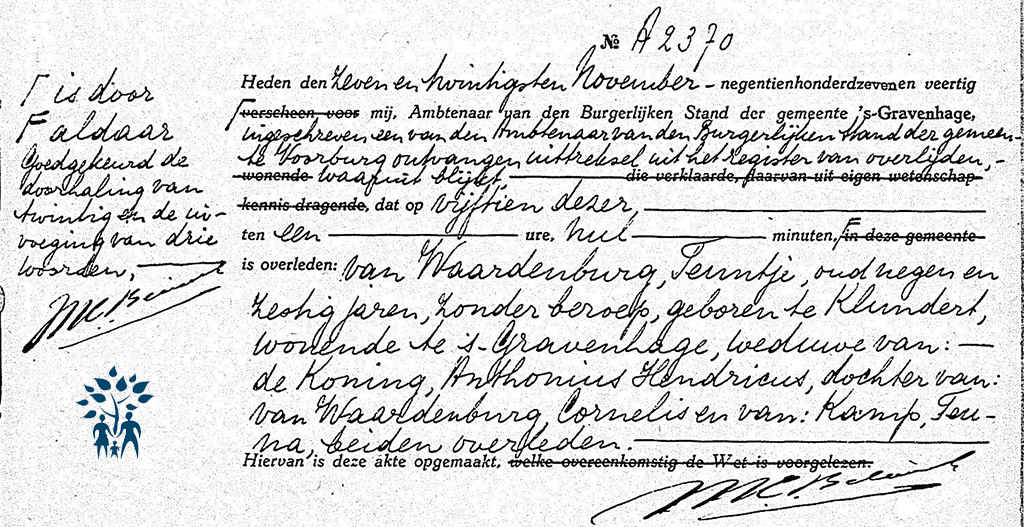 № A 2370
Heden den zeven en twintigsten November - negentienhonderdzevenen veertig
Γ verscheen voor mij, Ambtenaar van den Burgerlijken Stand der gemeente 's-Gravenhage,
ingeschreven een van den Ambtenaar van den Burgerlijken Stand der gemeen-
te Voorburg ontvangen uittreksel uit het register van overlijden, -
wonende waaruit blijkt, die verklaarde, daarvan uit eigen wetenschap
kennis dragende, dat op vijftien dezer,
ten een ure, nul minuten, F in deze gemeente
is overleden: van Waardenburg, Teuntje, oud negen en
zestig jaren, zonder beroep, geboren te Klundert,
wonende te 's-Gravenhage, weduwe van: —
de Koning, Anthonius Hendricus, dochter van:
van Waardenburg, Cornelis en van: Kamp, Teu-
na, beiden overleden.
Hiervan is deze akte opgemaakt, welke overeenkomstig de Wet is voorgelezen.
Γ is door
F aldaar
Goedgekeurd de
doorhaling van
twintig en de in-
voeging van drie
woorden,